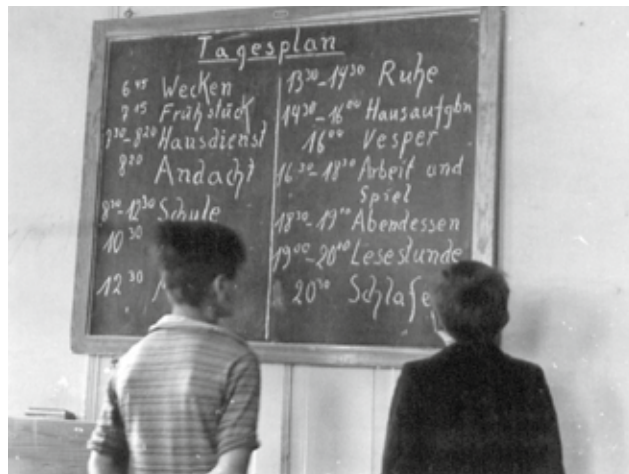 Tagesplan
6⁴⁵ Wecken
7¹⁵ Frühstück
7³⁰-8²⁰ Hausdienst
8²⁰ Andacht
8³⁰-12³⁰ Schule
10³⁰
12³⁰
13³⁰-14³⁰ Ruhe
14³⁰-16⁰⁰ Hausaufgbn
16⁰⁰ Vesper
16³⁰-18³⁰ Arbeit und
Spiel
18³⁰-19⁰⁰ Abendessen
19⁰⁰-20⁰⁰ Lesestunde
20³⁰ Schlafe